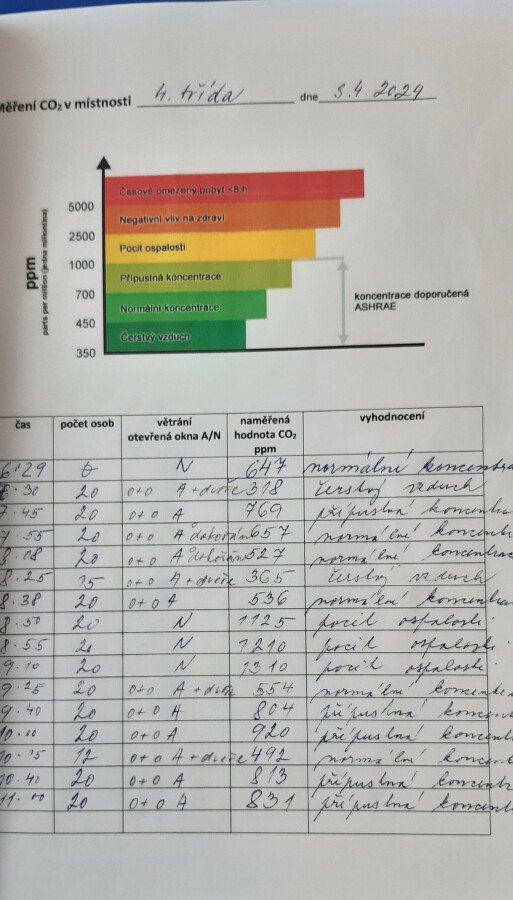 Měření CO₂ v místnosti 4. třída dne 3.4.2024
Časově omezený pobyt <8 h
5000
Negativní vliv na zdraví
2500
Pocit ospalosti
1000
Přípustná koncentrace
700
Normální koncentrace
450
Čerstvý vzduch
350
ppm
parts per million (jedna milióntina)
koncentrace doporučená
ASHRAE
čas počet osob větrání otevřená okna A/N naměřená hodnota CO₂ ppm vyhodnocení
6:29 N 647 normální koncentra
30 20 0+0 A + dveře 318 čerstvý vzduch
7.45 20 0+0 A 769 přípustná koncentra
7.55 20 0+0 A dokořán 657 normální koncentr
8.08 20 0+0 A dokořán 527 normální koncentrac
8.25 15 0+0 A + dveře 365 čerstvý vzduch
8.38 20 0+0 A 536 normální koncentra
8.50 20 N 1125 pocit ospalosti
8.55 N 1210 pocit ospalosti
9.10 20 N 1310 pocit ospalosti
9.25 20 0+0 A + dveře 554 normální koncent
9.40 20 0+0 A 804 přípustná koncen
10.00 20 0+0 A 920 přípustná koncen
12 0+0 A + dveře 492 normální koncen
10.40 20 0+0 A 813 přípustná koncentr
11.00 20 0+0 A 831 přípustná koncent